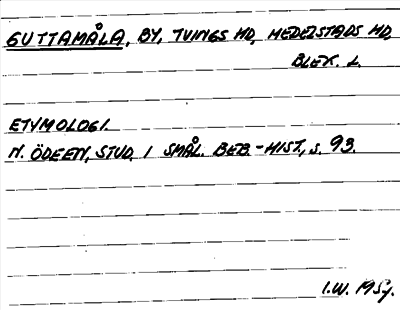 GUTTAMÅLA, BY, TVINGS HD, MEDELSTADS HD,
BLEK. L.
ETYMOLOGI.
N. ÖDEEN, STUD. I SMÅL. BEB.-HIST., S. 93.
I.W. 195